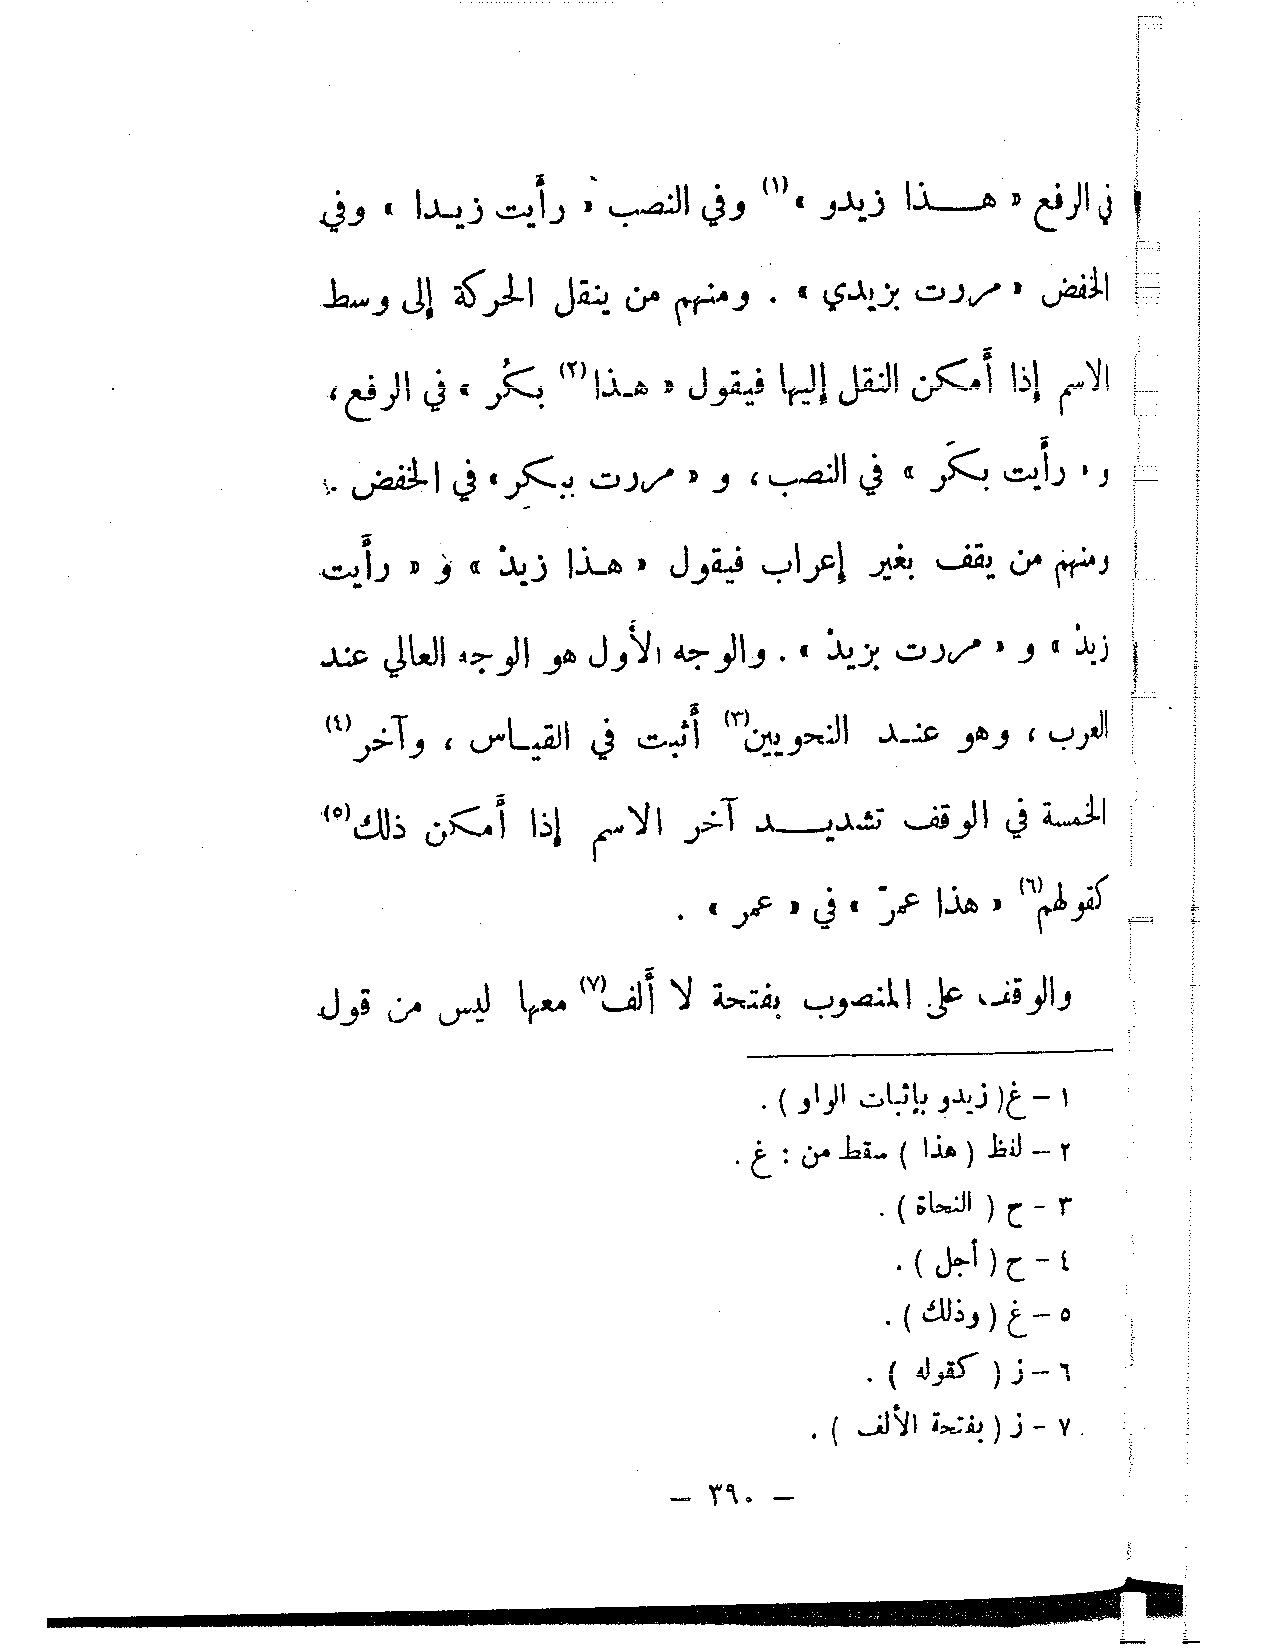 في الرفع « هـذا زيدو »(١) وفي النصب « رأيت زيـدا » وفي
الخفض « مررت بزيدي » . ومنهم من ينقل الحركة إلى وسط
الاسم إذا أمكن النقل إليها فيقول « هـذا(٢) بكُر » في الرفع ،
و « رأيت بكَر » في النصب ، و « مررت ببكر » في الخفض .
ومنهم من يقف بغير إعراب فيقول « هـذا زيدْ » و « رأيت
زيدْ » و « مررت بزيدْ » . والوجه الأول هو الوجه العالي عند
العرب ، وهو عنـد النحويين(٣) أثبت في القيـاس ، وآخر(٤)
الخمسة في الوقف تشديـد آخر الاسم إذا أمكن ذلك(٥)
كقولهم(٦) « هذا عمرّ » في « عمر » .
والوقف على المنصوب بفتحة لا ألف(٧) معها ليس من قول
١ – غ ( زيدو بإثبات الواو ) .
٢ – لفظ ( هذا ) سقط من : غ .
٣ – ح ( النحاة ) .
٤ – ح ( أجل ) .
٥ – غ ( وذلك ) .
٦ – ز ( كقوله ) .
٧ – ز ( بفتحة الألف ) .
– ٣٩٠ –